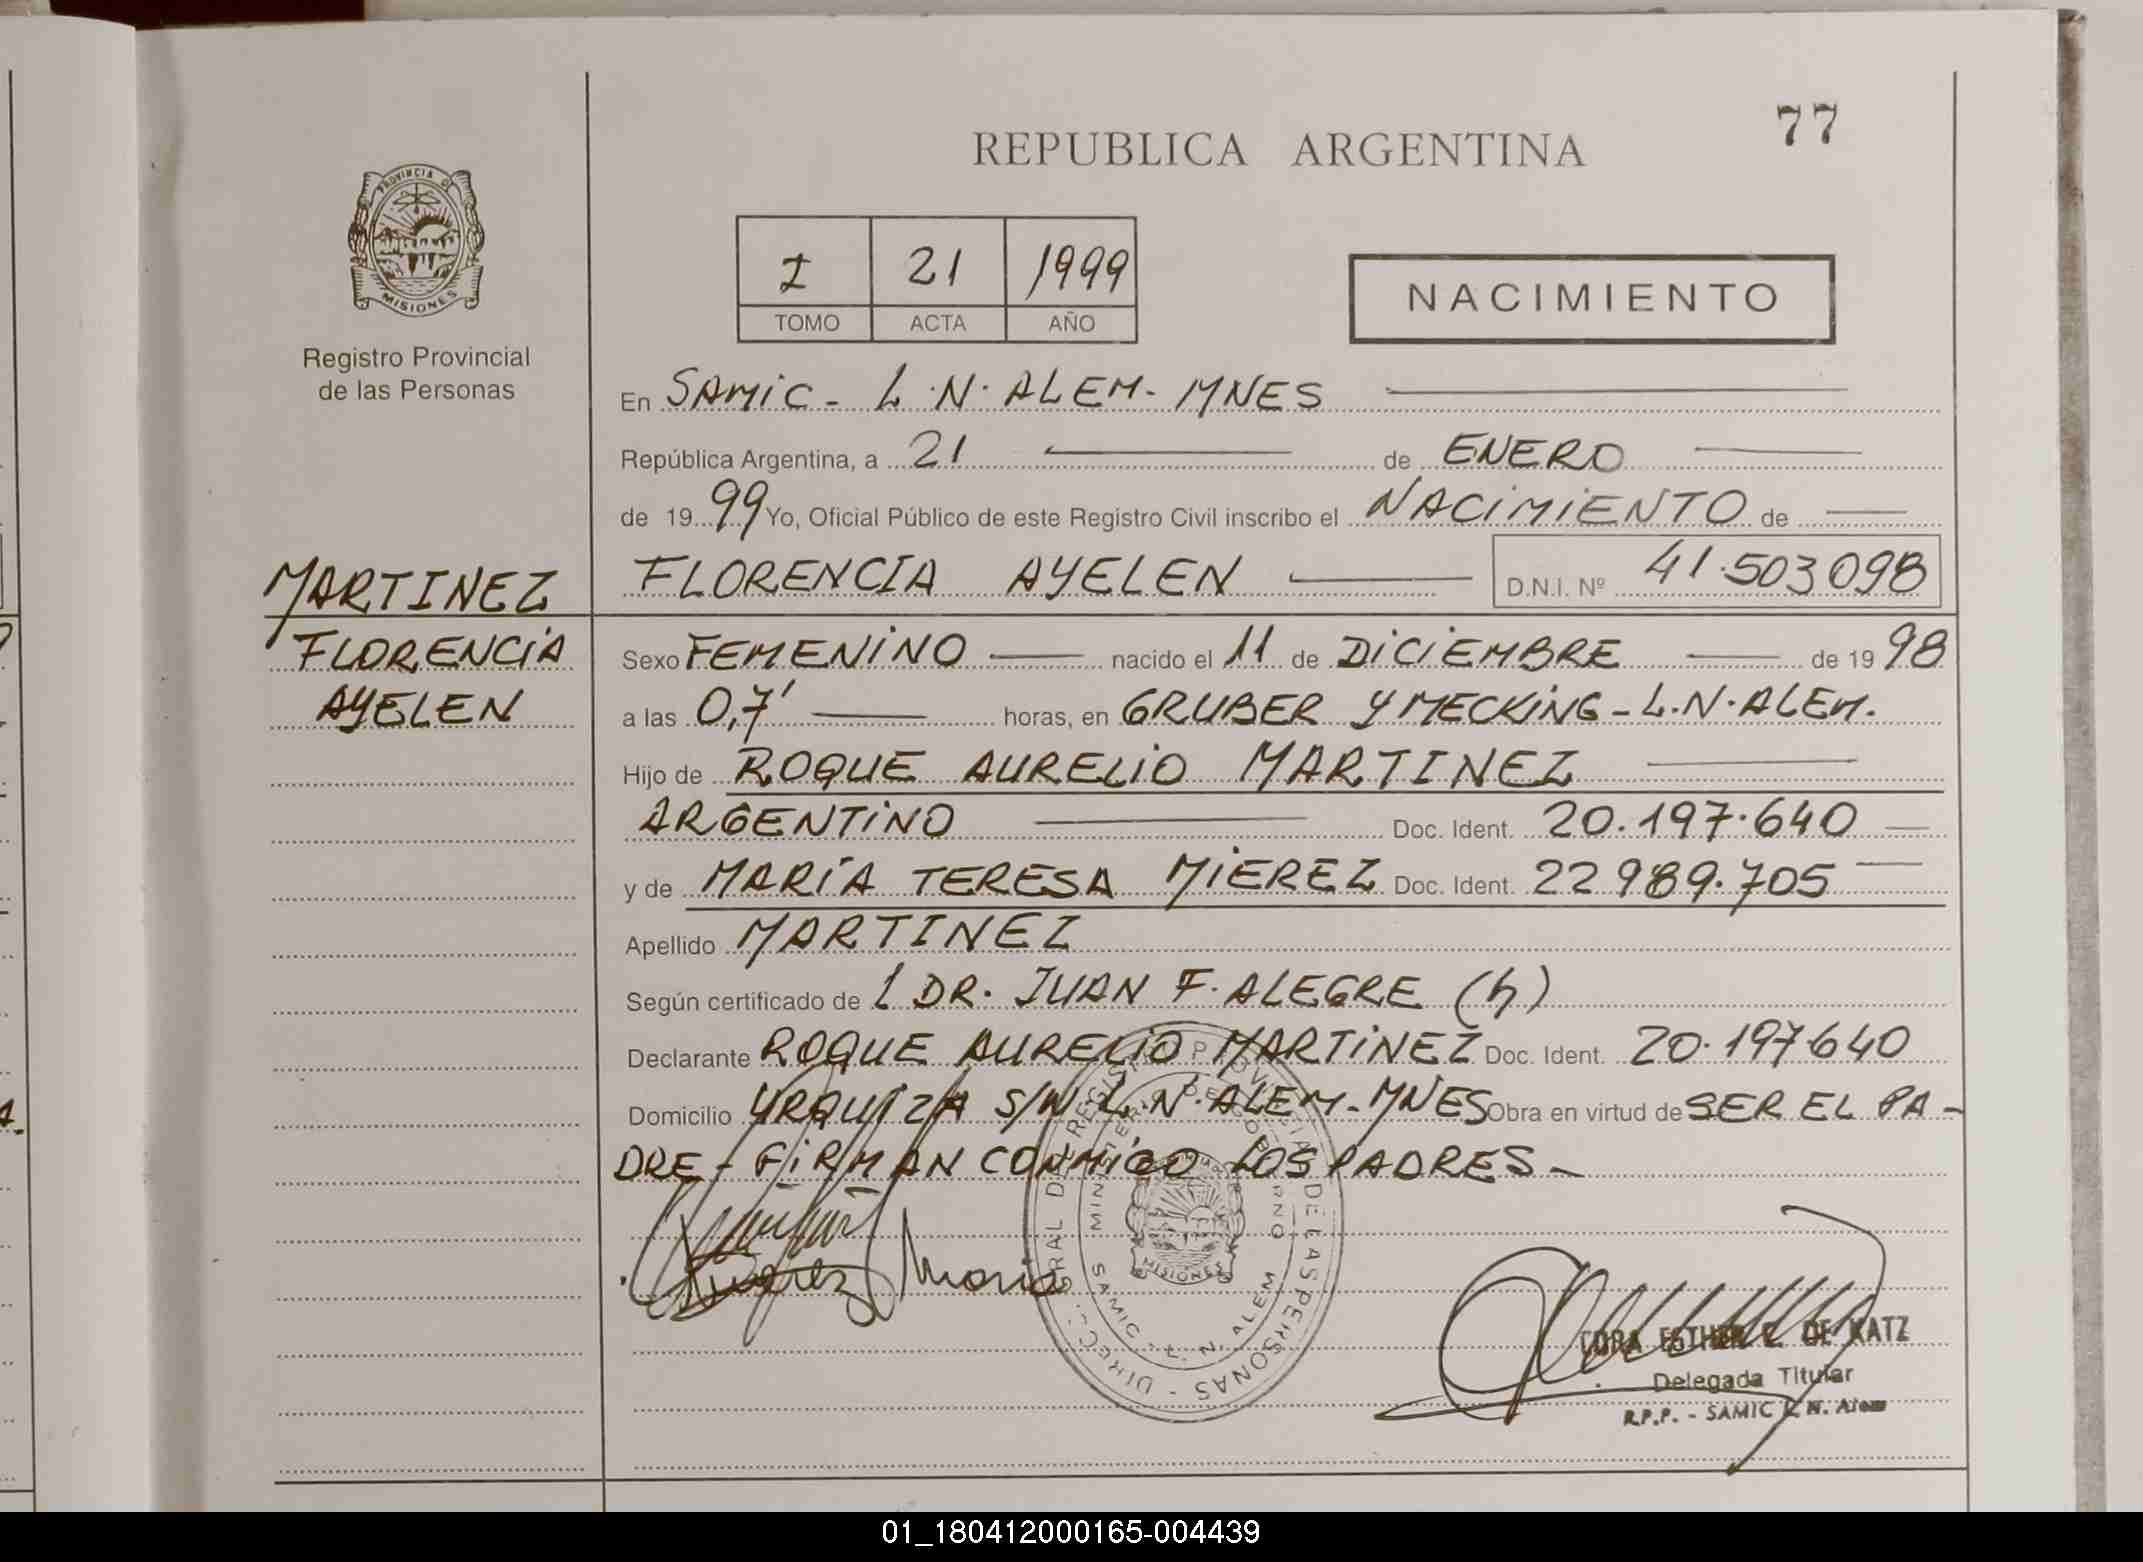 77
REPUBLICA ARGENTINA
PROVINCIA DE
MISIONES
Registro Provincial
de las Personas
I 21 1999
TOMO ACTA AÑO
NACIMIENTO
En SAMIC - L.N. ALEM - MNES
República Argentina, a 21 de ENERO
de 19 99 Yo, Oficial Público de este Registro Civil inscribo el NACIMIENTO de
MARTINEZ
FLORENCIA
AYELEN
FLORENCIA AYELEN D.N.I. Nº 41.503098
Sexo FEMENINO nacido el 11 de DICIEMBRE de 19 98
a las 0,7' horas, en GRUBER Y MECKING - L.N. ALEM.
Hijo de ROQUE AURELIO MARTINEZ
ARGENTINO Doc. Ident. 20.197.640
y de MARÍA TERESA MIEREZ Doc. Ident. 22989.705
Apellido MARTINEZ
Según certificado de l DR. JUAN F. ALEGRE (h)
Declarante ROQUE AURELIO MARTINEZ Doc. Ident. 20.197640
Domicilio URQUIZA S/N L.N. ALEM - MNES Obra en virtud de SER EL PA-
DRE - FIRMAN CONMIGO LOS PADRES -
Maria
DIREC. GRAL DE REGISTRO PROVINCIAL DE LAS PERSONAS
MINISTERIO DE GOBIERNO
SAMIC - L. N. ALEM
MISIONES
CORA ESTHER E. DE KATZ
Delegada Titular
R.P.P. - SAMIC L. N. Alem
01_180412000165-004439